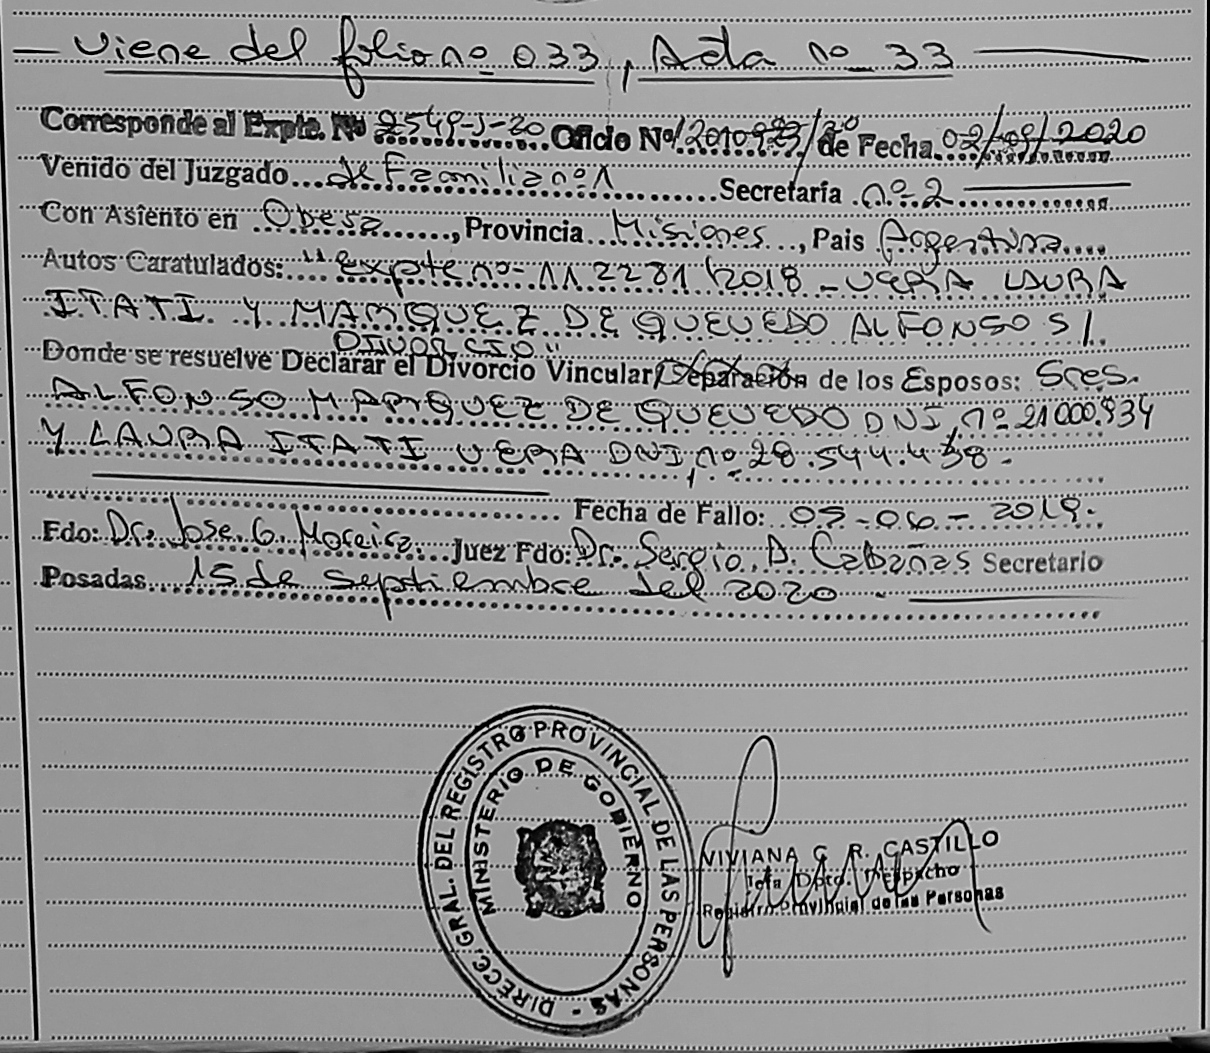 — Viene del folio nº 033, Acta nº 33 —
Corresponde al Expte. Nº 2549-J-20 Oficio Nº de Fecha 02/09/2020
Venido del Juzgado de Familia nº 1 Secretaría nº 2
Con Asiento en Oberá, Provincia Misiones, Pais Argentina
Autos Caratulados: "Expte nº 112281/2018 - VERA LAURA
ITATI Y MARQUEZ DE QUEVEDO ALFONSO S/
DIVORCIO"
Donde se resuelve Declarar el Divorcio Vincular/Separación de los Esposos: Sres.
ALFONSO MARQUEZ DE QUEVEDO DNI, nº 21.000.934
Y LAURA ITATI VERA DNI, nº 28.544.438.
Fecha de Fallo: 05-06-2019.
Fdo: Dr. Jose G. Moreira Juez Fdo: Dr. Sergio D. Cabañas Secretario
Posadas 15 de septiembre del 2020.
DIRECC. GRAL. DEL REGISTRO PROVINCIAL DE LAS PERSONAS -
MINISTERIO DE GOBIERNO
VIVIANA C. R. CASTILLO
Jefa Dpto. Despacho
Registro Provincial de las Personas